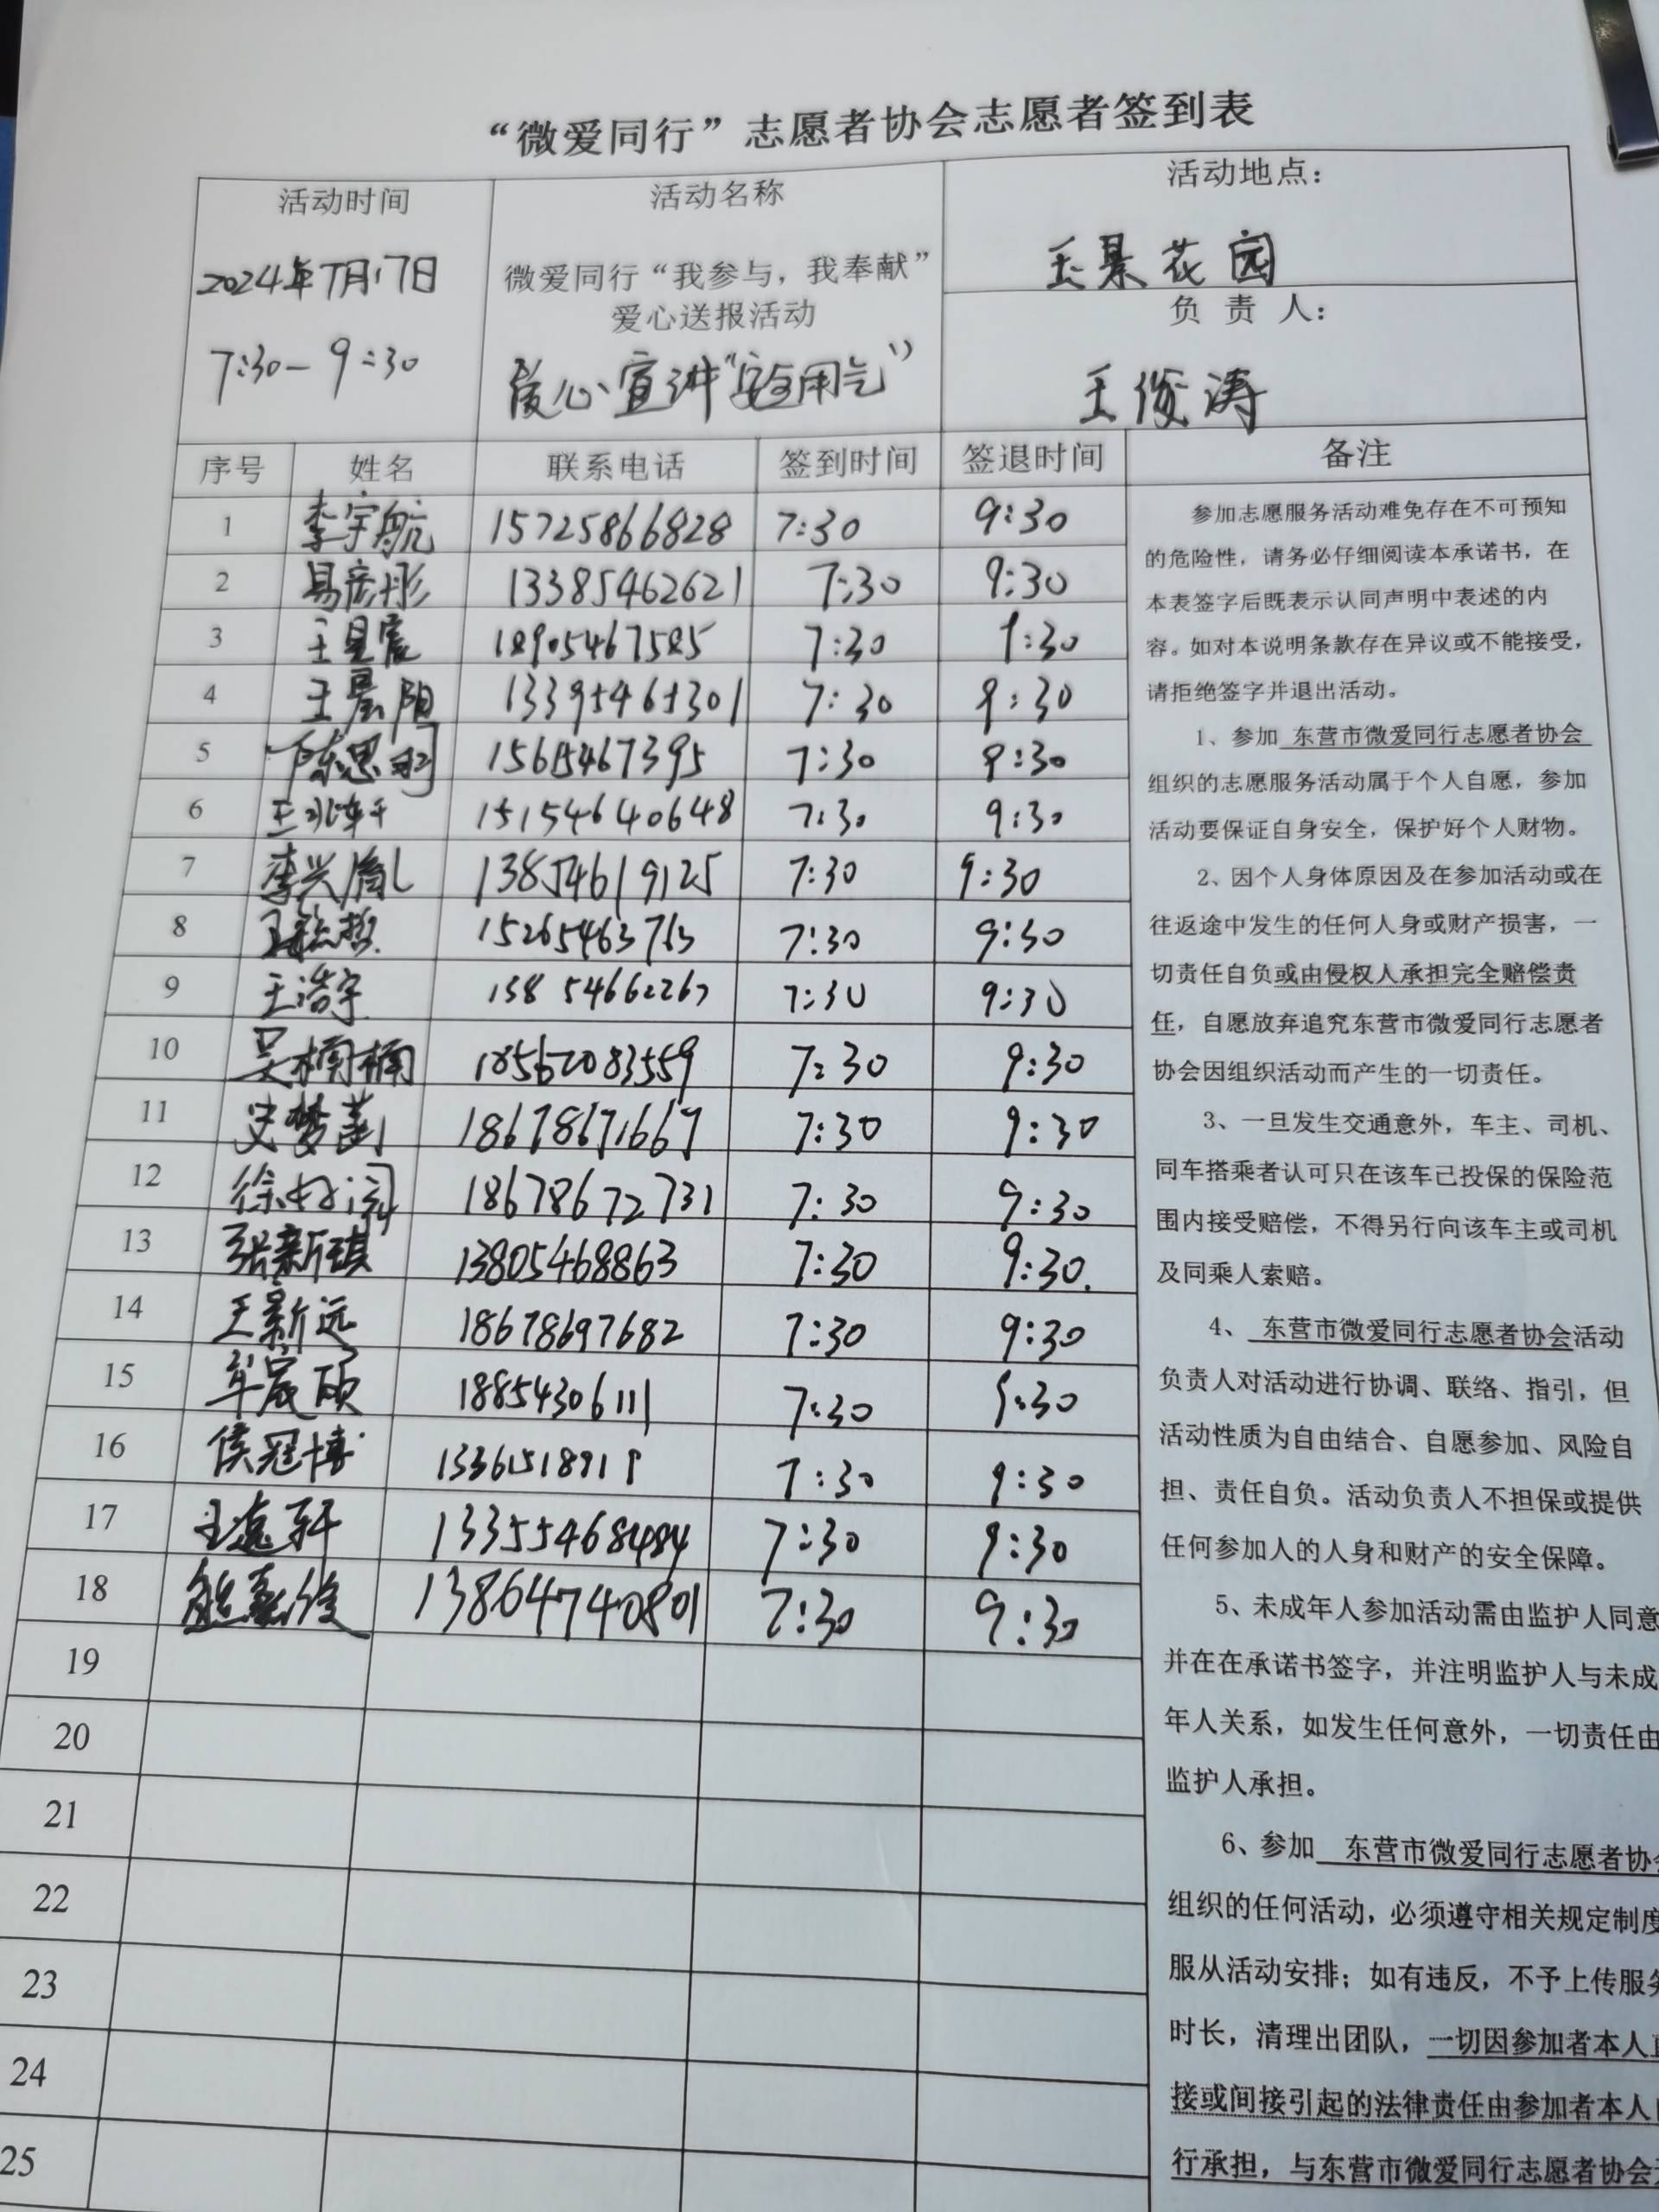 “微爱同行”志愿者协会志愿者签到表
活动时间
2024年7月17日
7:30-9:30
活动名称
微爱同行“我参与，我奉献”
爱心送报活动
爱心宣讲“安全用气”
活动地点：
玉景花园
负 责 人：
王俊涛
序号 姓名 联系电话 签到时间 签退时间 备注
1 李宇航 15725866828 7:30 9:30
2 易宏彤 13385462621 7:30 9:30
3 王星宸 18905467585 7:30 9:30
4 王晨阳 13395465301 7:30 9:30
5 陈思 15615467395 7:30 9:30
6 王 15154640648 7:30 9:30
7 李兴胤 13854619125 7:30 9:30
8 7:30 9:30
9 王浩宇 13854662267 7:30 9:30
10 吴楠楠 18562083559 7:30 9:30
11 史梦菡 18678671667 7:30 9:30
12 徐 18678672731 7:30 9:30
13 张新琪 13805468863 7:30 9:30.
14 王新远 18678697682 7:30 9:30
15 牟晟硕 18854306111 7:30 9:30
16 侯冠博 7:30 9:30
17 王逸轩 7:30 9:30
18 熊嘉俊 7:30 9:30
19
20
21
22
23
24
25
参加志愿服务活动难免存在不可预知
的危险性，请务必仔细阅读本承诺书，在
本表签字后既表示认同声明中表述的内
容。如对本说明条款存在异议或不能接受，
请拒绝签字并退出活动。
1、参加 东营市微爱同行志愿者协会
组织的志愿服务活动属于个人自愿，参加
活动要保证自身安全，保护好个人财物。
2、因个人身体原因及在参加活动或在
往返途中发生的任何人身或财产损害，一
切责任自负或由侵权人承担完全赔偿责
任，自愿放弃追究东营市微爱同行志愿者
协会因组织活动而产生的一切责任。
3、一旦发生交通意外，车主、司机、
同车搭乘者认可只在该车已投保的保险范
围内接受赔偿，不得另行向该车主或司机
及同乘人索赔。
4、 东营市微爱同行志愿者协会活动
负责人对活动进行协调、联络、指引，但
活动性质为自由结合、自愿参加、风险自
担、责任自负。活动负责人不担保或提供
任何参加人的人身和财产的安全保障。
5、未成年人参加活动需由监护人同意
并在在承诺书签字，并注明监护人与未成
年人关系，如发生任何意外，一切责任由
监护人承担。
6、参加 东营市微爱同行志愿者协会
组织的任何活动，必须遵守相关规定制度
服从活动安排；如有违反，不予上传服务
时长，清理出团队，一切因参加者本人直
接或间接引起的法律责任由参加者本人
行承担，与东营市微爱同行志愿者协会